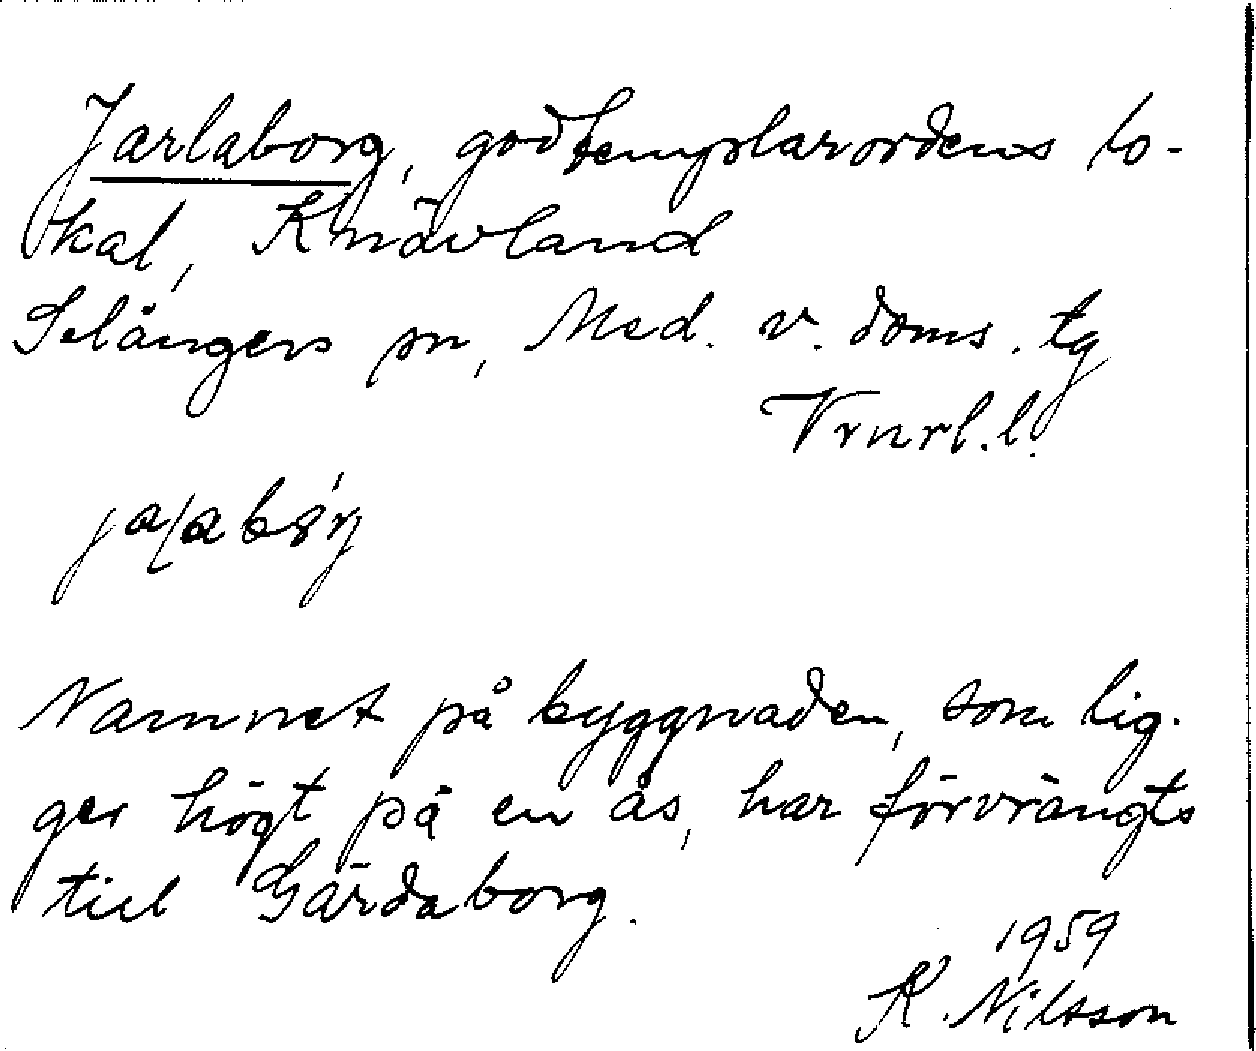 Jarlaborg, godtemplarordens lo-
kal, Knävland
Selångers sn, Med. v. doms. tg
Vrnrl. l.
Namnet på byggnaden, som lig-
ger högt på en ås, har förvrängts
till Gärdaborg.
1959
K. Nilsson